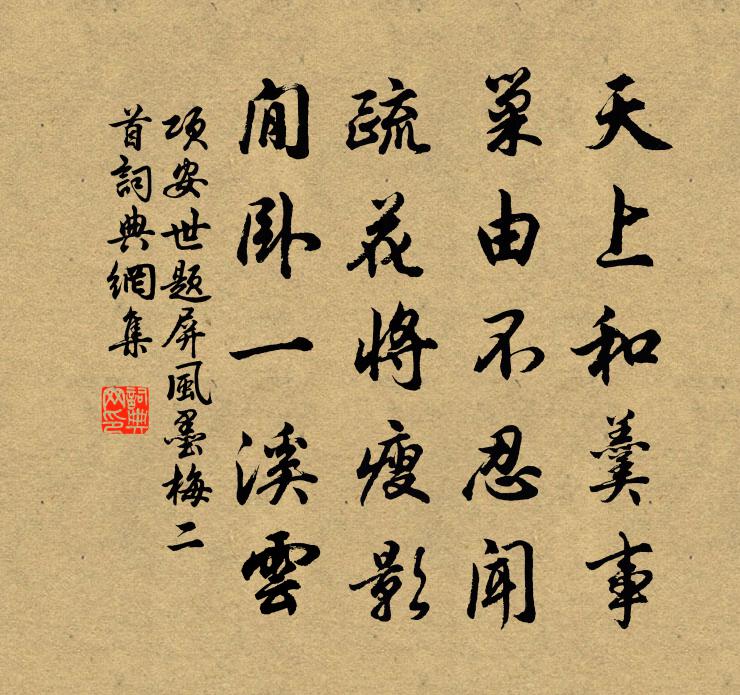 天上和羹事
巢由不忍聞
疏花將瘦影
閒卧一溪雲
項安世题屏風墨梅二
首詞典網集
詞典網印